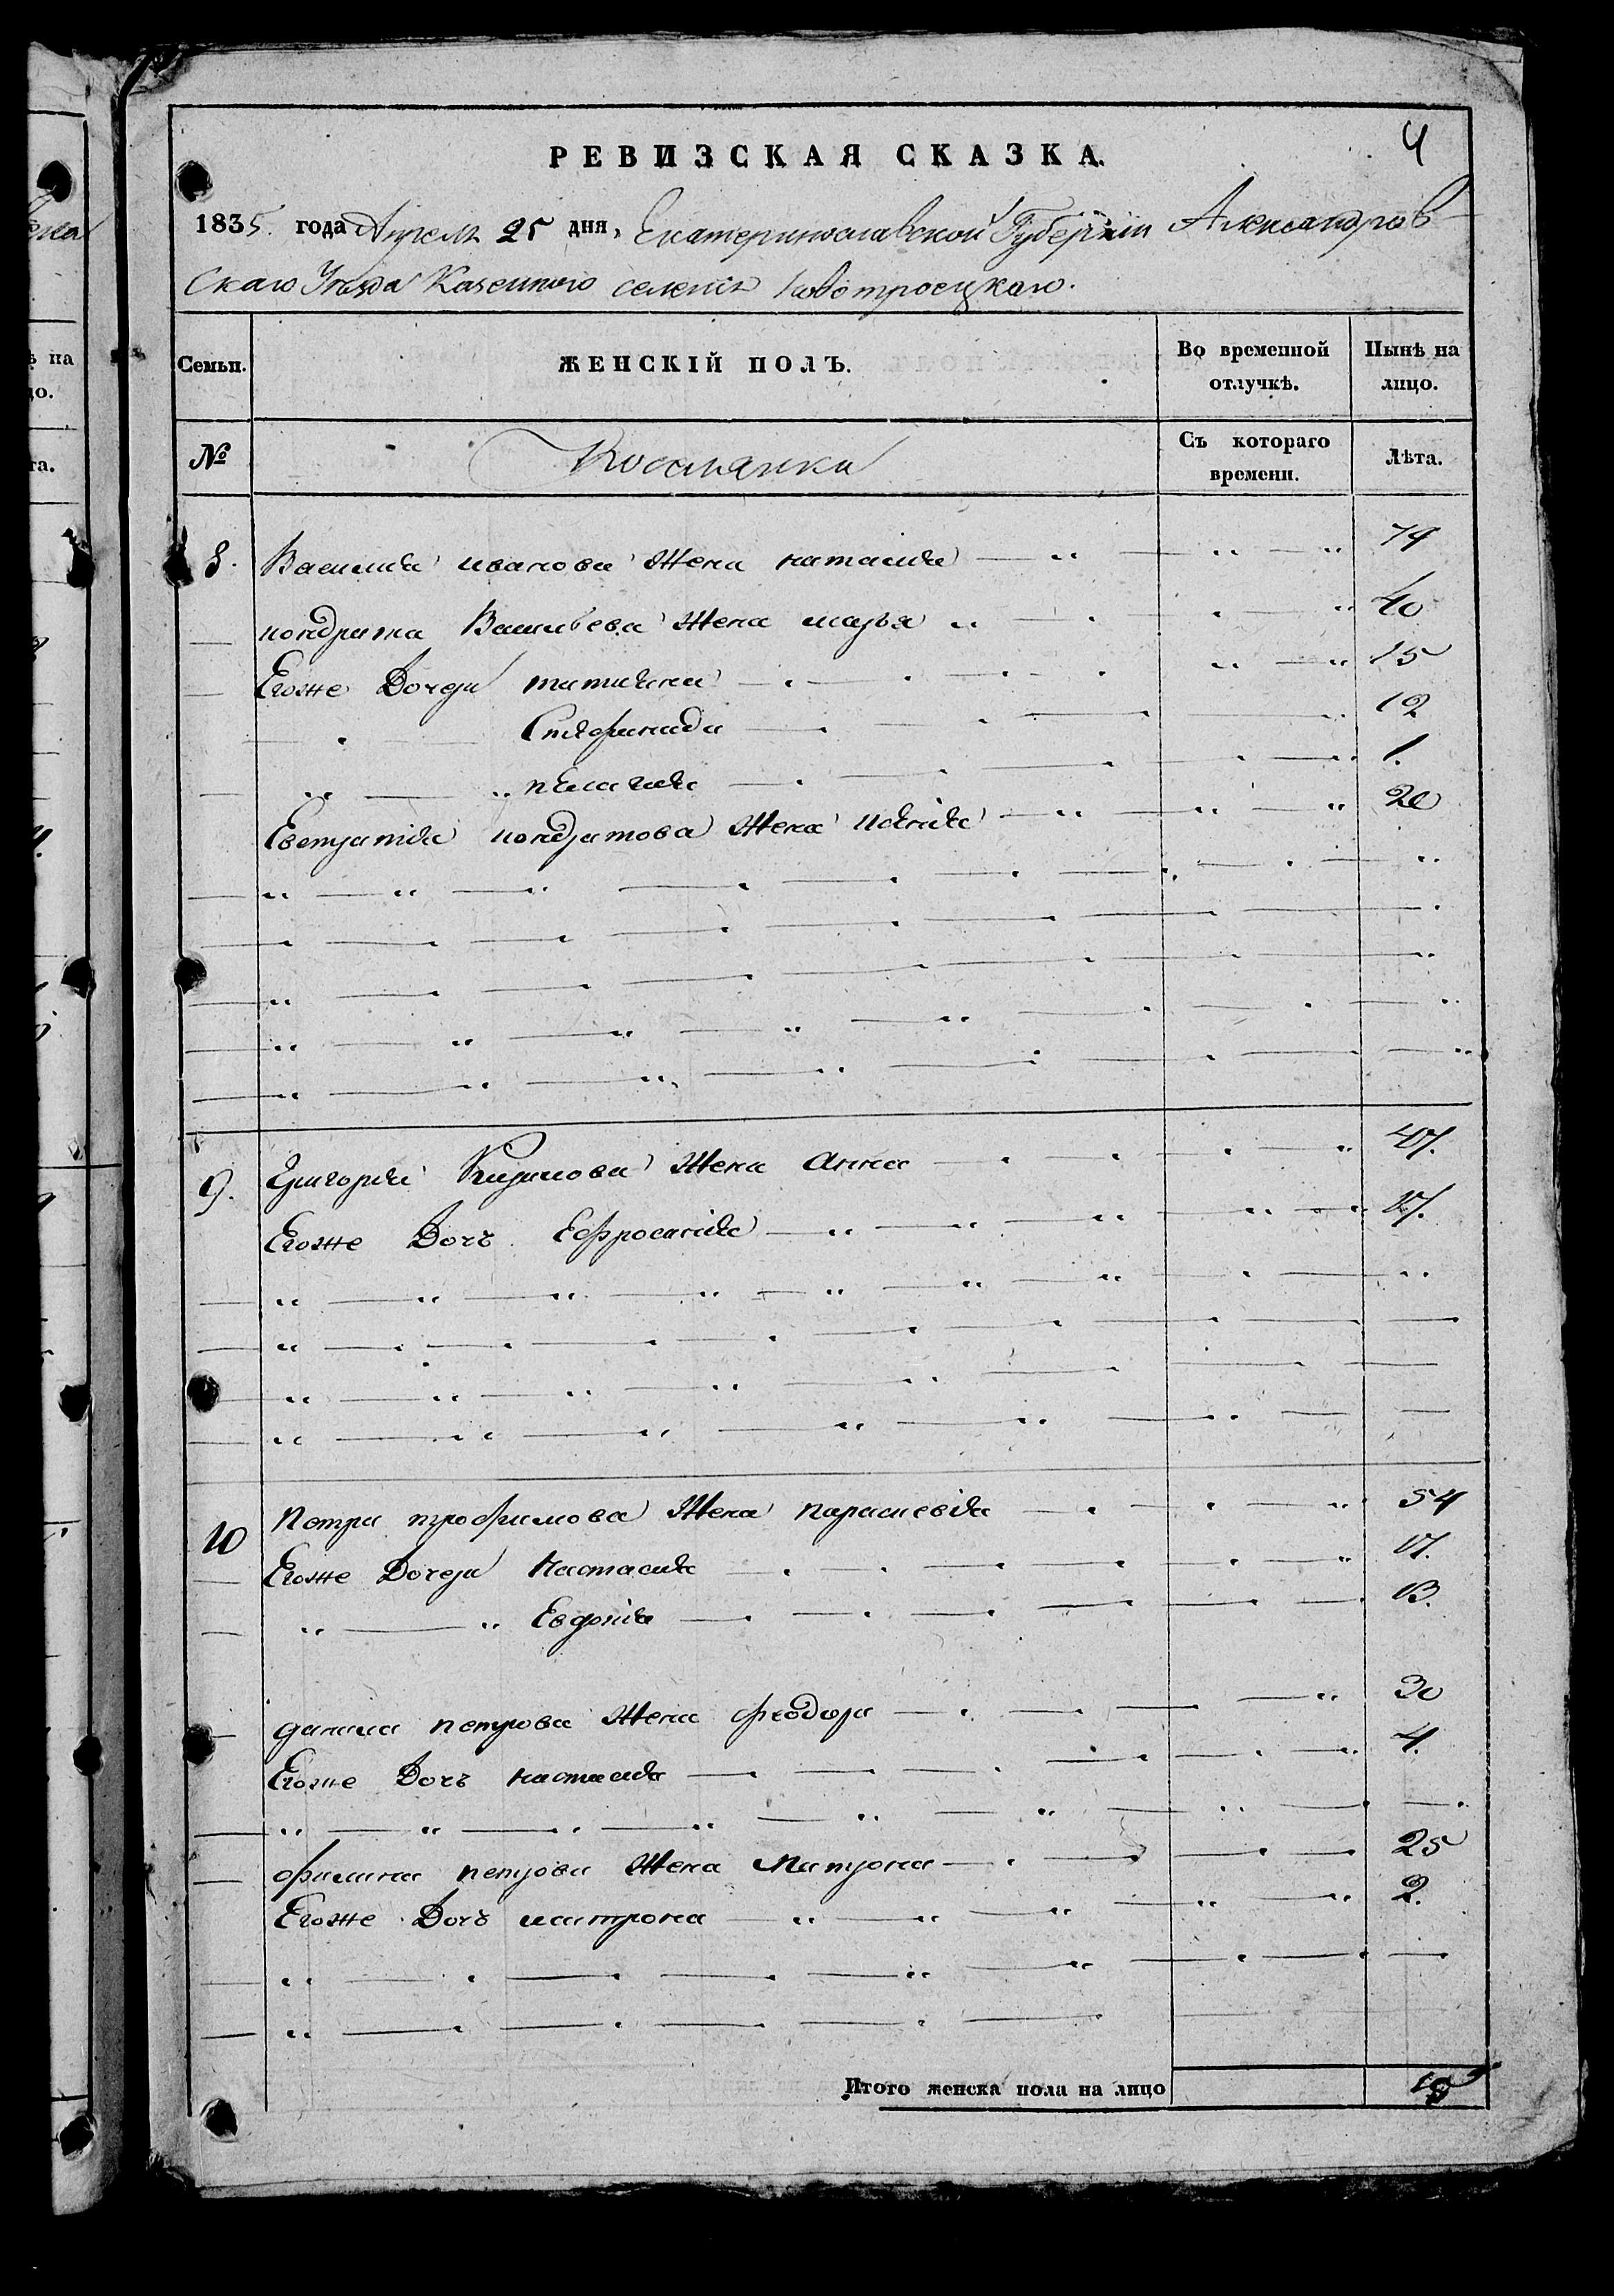 4
РЕВИЗСКАЯ СКАЗКА.
1835. года Апреля 25 дня, Екатеринославской Губерніи Александров-
скаго Уезда Казенного селенія Новотроецкаго.
Семьи. ЖЕНСКІЙ ПОЛЪ. Во временной отлучкѣ. Нынѣ на лицо.
№ Съ котораго времени. Лѣта.
8. Василія иванова Жена наталія 74
кондрата Васильева Жена марья 40
Егоже Дочери татияна 15
Степанида 12
пелагия 1.
Евстратія кондратова Жена 20
9. Григорія Жена анна 47.
Егоже Дочь Ефросанія 17.
10 Петра трофимова Жена параскевія 54
Егоже Дочери Настасия 17.
Евдокія 13.
данила петрова Жена феодора 30
Егоже Дочь настасия 4.
филипа петрова Жена Матрона 25
Егоже Дочь матрона 2.
Итого женска пола на лицо